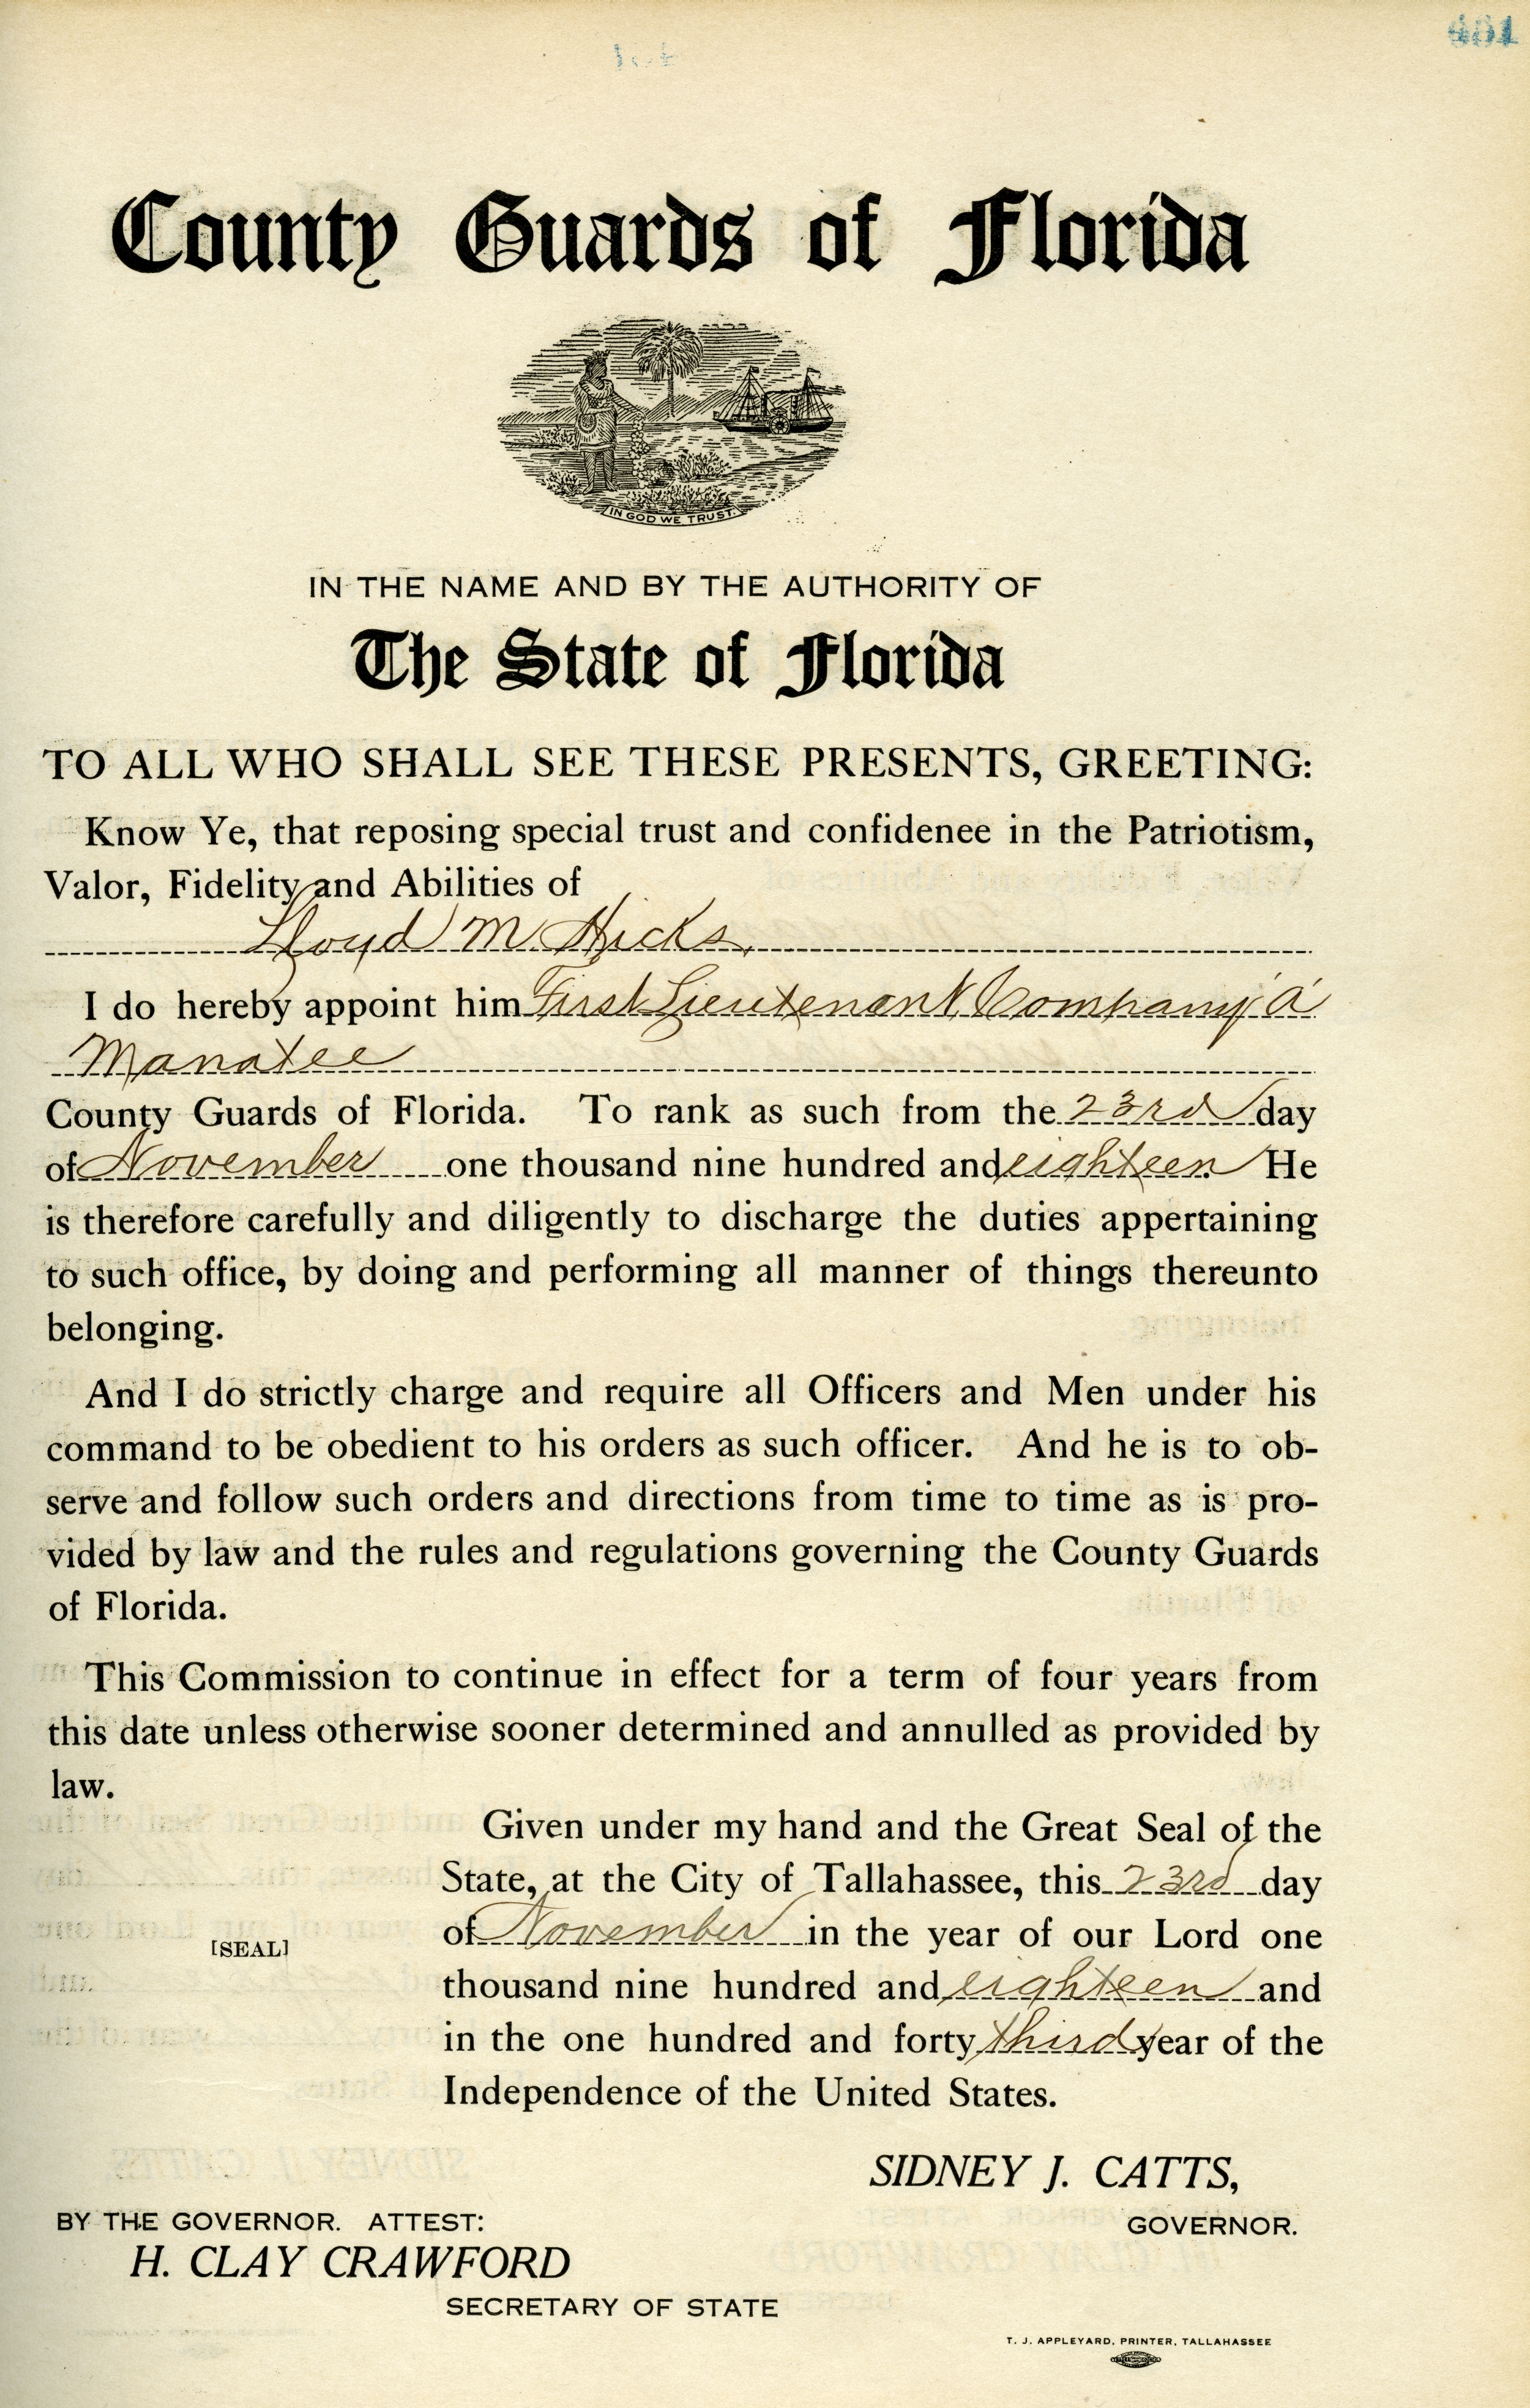 401
County Guards of Florida
IN GOD WE TRUST.
IN THE NAME AND BY THE AUTHORITY OF
The State of Florida
TO ALL WHO SHALL SEE THESE PRESENTS, GREETING:
Know Ye, that reposing special trust and confidenee in the Patriotism,
Valor, Fidelity and Abilities of
Lloyd M Hicks,
I do hereby appoint him First Lieutenant, Company 'A'
Manatee
County Guards of Florida. To rank as such from the 23rd day
of November one thousand nine hundred and eighteen. He
is therefore carefully and diligently to discharge the duties appertaining
to such office, by doing and performing all manner of things thereunto
belonging.
And I do strictly charge and require all Officers and Men under his
command to be obedient to his orders as such officer. And he is to ob-
serve and follow such orders and directions from time to time as is pro-
vided by law and the rules and regulations governing the County Guards
of Florida.
This Commission to continue in effect for a term of four years from
this date unless otherwise sooner determined and annulled as provided by
law.
Given under my hand and the Great Seal of the
State, at the City of Tallahassee, this 23rd day
of November in the year of our Lord one
[SEAL]
thousand nine hundred and eighteen and
in the one hundred and forty third year of the
Independence of the United States.
SIDNEY J. CATTS,
GOVERNOR.
BY THE GOVERNOR. ATTEST:
H. CLAY CRAWFORD
SECRETARY OF STATE
T. J. APPLEYARD, PRINTER, TALLAHASSEE